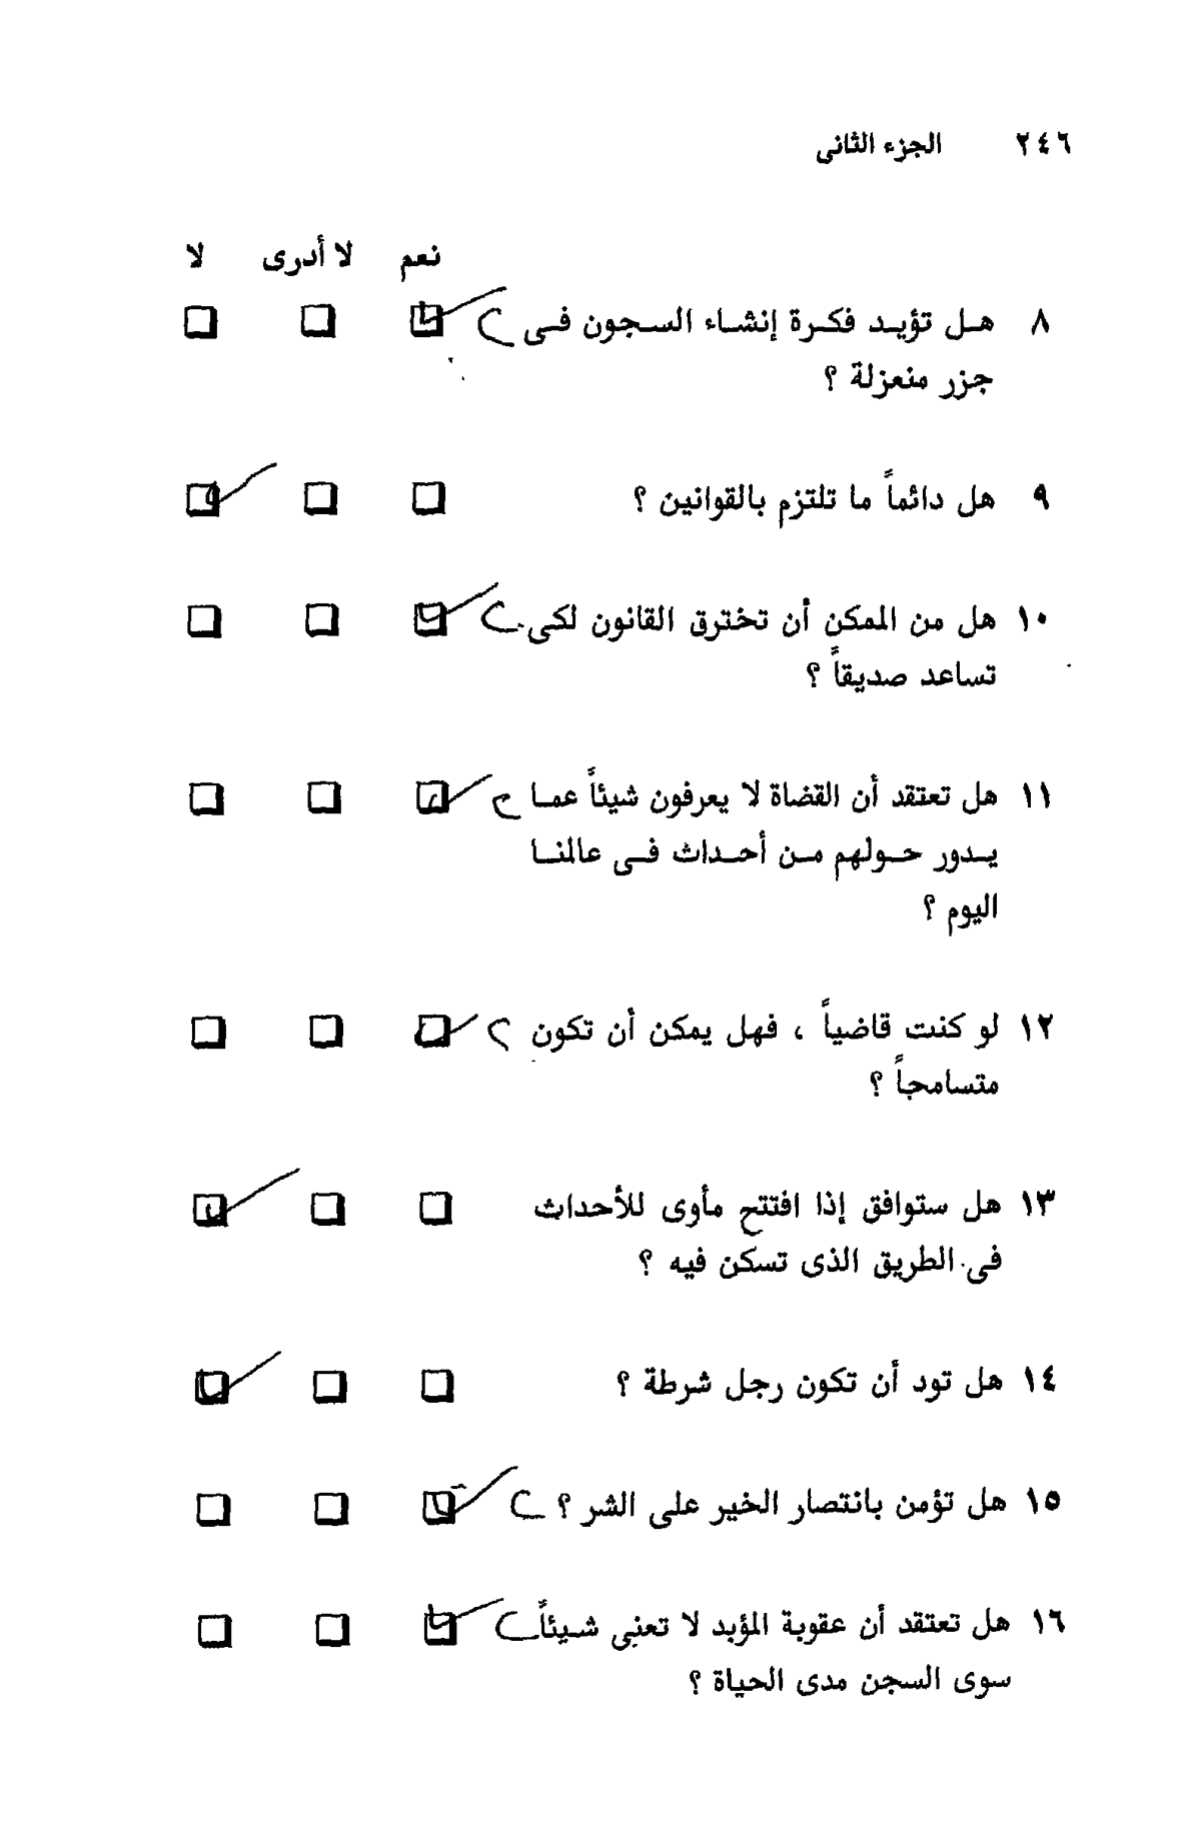 ٢٤٦ الجزء الثانى
نعم لا أدرى لا
٨ هـل تؤيـد فكـرة إنشـاء السـجون فـى
جزر منعزلة ؟
٩ هل دائماً ما تلتزم بالقوانين ؟
١٠ هل من الممكن أن تخترق القانون لكى
تساعد صديقاً ؟
١١ هل تعتقد أن القضاة لا يعرفون شيئاً عمـا
يـدور حـولهم مـن أحـداث فـى عالمنـا
اليوم ؟
١٢ لو كنت قاضياً ، فهل يمكن أن تكون
متسامحاً ؟
١٣ هل ستوافق إذا افتتح مأوى للأحداث
فى الطريق الذى تسكن فيه ؟
١٤ هل تود أن تكون رجل شرطة ؟
١٥ هل تؤمن بانتصار الخير على الشر ؟
١٦ هل تعتقد أن عقوبة المؤبد لا تعنى شـيئاً
سوى السجن مدى الحياة ؟